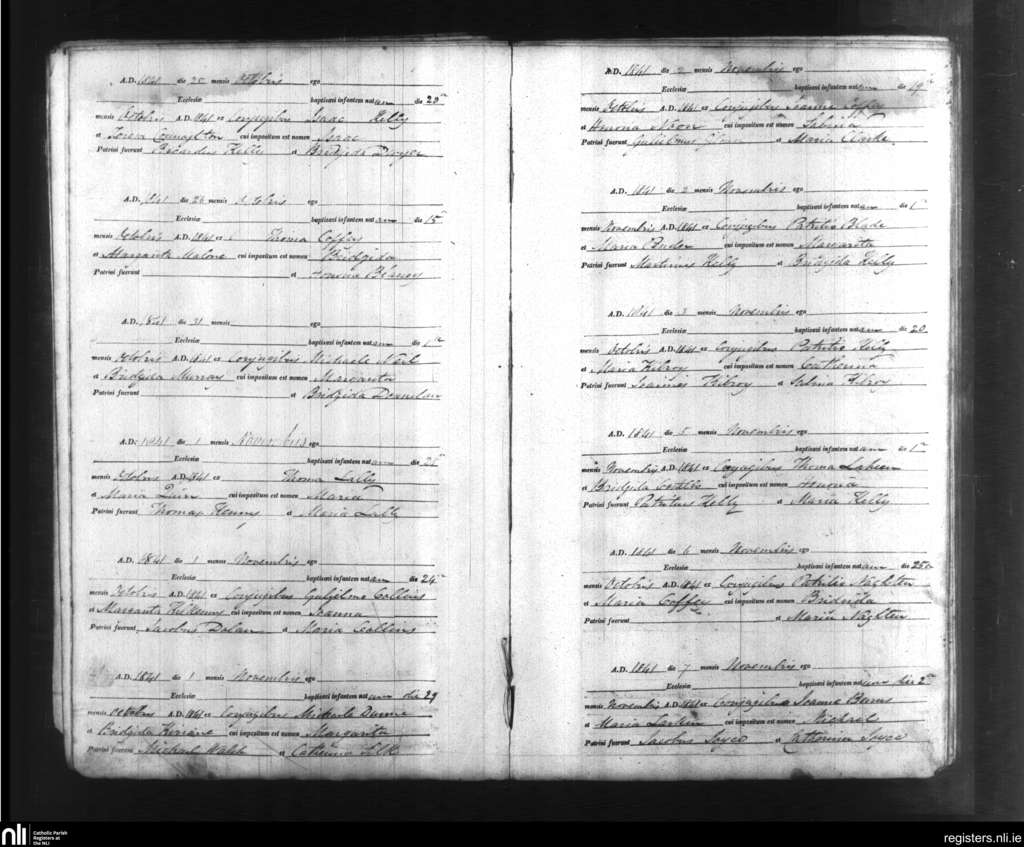 A.D. 1841 die 25 mensis Octobris ego
Ecclesiæ baptisavi infantem natam die 23
mensis Octobris A.D. 1841 ex Conjugibus Isaac Kelly
et Teresa Connaghton cui impositum est nomen Isaac
Patrini fuerunt Kelly et Bridgida Dwyer
A.D. 1841 die 26 mensis Octobris
Ecclesiæ baptisavi infantem natam die 15
mensis Octobris A.D. 1841 Thoma Coffey
et Margarita Malone cui impositum est nomen Bridgida
Patrini fuerunt et Honoria
A.D. 1841 die 31 mensis ego
Ecclesiæ baptisavi infantem natam die 1
mensis Octobris A.D. 1841 ex Conjugibus Michaele
et Bridgida Murray cui impositum est nomen Margarita
Patrini fuerunt et Bridgida
A.D. 1841 die 1 mensis Novembris ego
Ecclesiæ baptisavi infantem natam die 25
mensis Octobris A.D. 1841 Thoma Lally
et Maria cui impositum est nomen Maria
Patrini fuerunt Thomas Kenny et Maria Lally
A.D. 1841 die 1 mensis Novembris ego
Ecclesiæ baptisavi infantem natam die 24
mensis Octobris A.D. 1841 ex Conjugibus Gulielmo Collins
et Margarita cui impositum est nomen Joanna
Patrini fuerunt Jacobus Dolan et Maria Collins
A.D. 1841 die 1 mensis Novembris ego
Ecclesiæ baptisavi infantem natam die 29
mensis Octobris A.D. 1841 ex Conjugibus Michaele Dunne
et Bridgida cui impositum est nomen Margarita
Patrini fuerunt Michael Walsh et Catherina
A.D. 1841 die 2 mensis Novembris ego
Ecclesiæ baptisavi infantem natam die 19
mensis Octobris A.D. 1841 ex Conjugibus Joanne Coffey
et Honoria cui impositum est nomen Sabina
Patrini fuerunt Gulielmus et Maria Clarke
A.D. 1841 die 2 mensis Novembris ego
Ecclesiæ baptisavi infantem natam die 1
mensis Novembris A.D. 1841 ex Conjugibus Patritio Blade
et Maria cui impositum est nomen Margarita
Patrini fuerunt Martinus Kelly et Bridgida Kelly
A.D. 1841 die 3 mensis Novembris ego
Ecclesiæ baptisavi infantem natam die 20
mensis Octobris A.D. 1841 ex Conjugibus Patritio Kelly
et Maria Kilroy cui impositum est nomen Catherina
Patrini fuerunt Joannes Kilroy et Sabina Kilroy
A.D. 1841 die 5 mensis Novembris ego
Ecclesiæ baptisavi infantem natam die 1
mensis Novembris A.D. 1841 ex Conjugibus Thoma
et Bridgida cui impositum est nomen Honoria
Patrini fuerunt Patritius Kelly et Maria Kelly
A.D. 1841 die 6 mensis Novembris ego
Ecclesiæ baptisavi infantem natam die 25
mensis Octobris A.D. 1841 ex Conjugibus Patritio Naghten
et Maria Coffey cui impositum est nomen Bridgida
Patrini fuerunt et Maria Naghten
A.D. 1841 die 7 mensis Novembris ego
Ecclesiæ baptisavi infantem natum die 2
mensis Novembris A.D. 1841 ex Conjugibus Joanne Burns
et Maria Larkin cui impositum est nomen Michael
Patrini fuerunt Jacobus Joyce et Catherina Joyce
nli Catholic Parish
Registers at
the NLI
registers.nli.ie